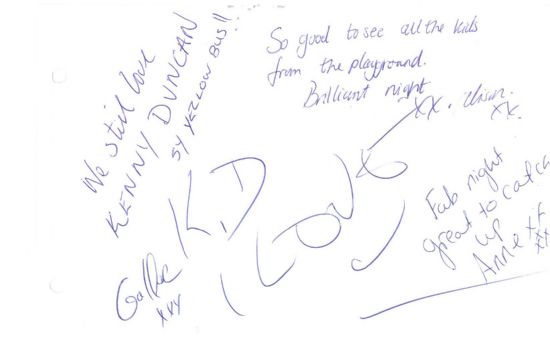 We still love
KENNY DUNCAN
5Y YELLOW BUS!!
So good to see all the kids
from the playground.
Brilliant night
XX.
XX.
K.D
I LOVE
XXX
Fab night
great to catch
up
Anne
XX